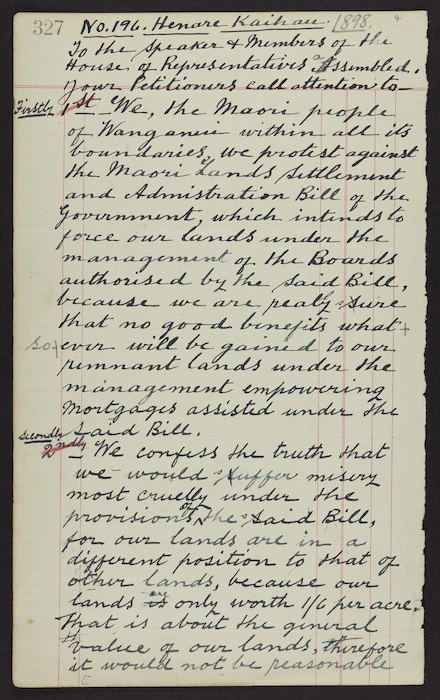 327 No. 196. Henare Kaihau. 1898.
To the Speaker & Members of the
House, of Representatives Assembled.
Your Petitioners call attention to—
Firstly 1st We, the Maori people
of Wanganui within all its
boundaries, we protest against
the Maori Lands Settlement
and Admistration Bill of the
Government, which intends to
force our lands under the
management of the Boards
authorised by the said Bill,
because we are realy sure
that no good benefits what
so ever will be gained to our
remnant lands under the
management empowering
Mortgages assisted under the
Said Bill.
Secondly 2ndly We confess the truth that
we would suffer misery
most cruelly under the
provisions of the said Bill,
for our lands are in a
different position to that of
other lands, because our
lands is are only worth 1/6 per acre.
That is about the general
value of our lands, therefore
it would not be reasonable